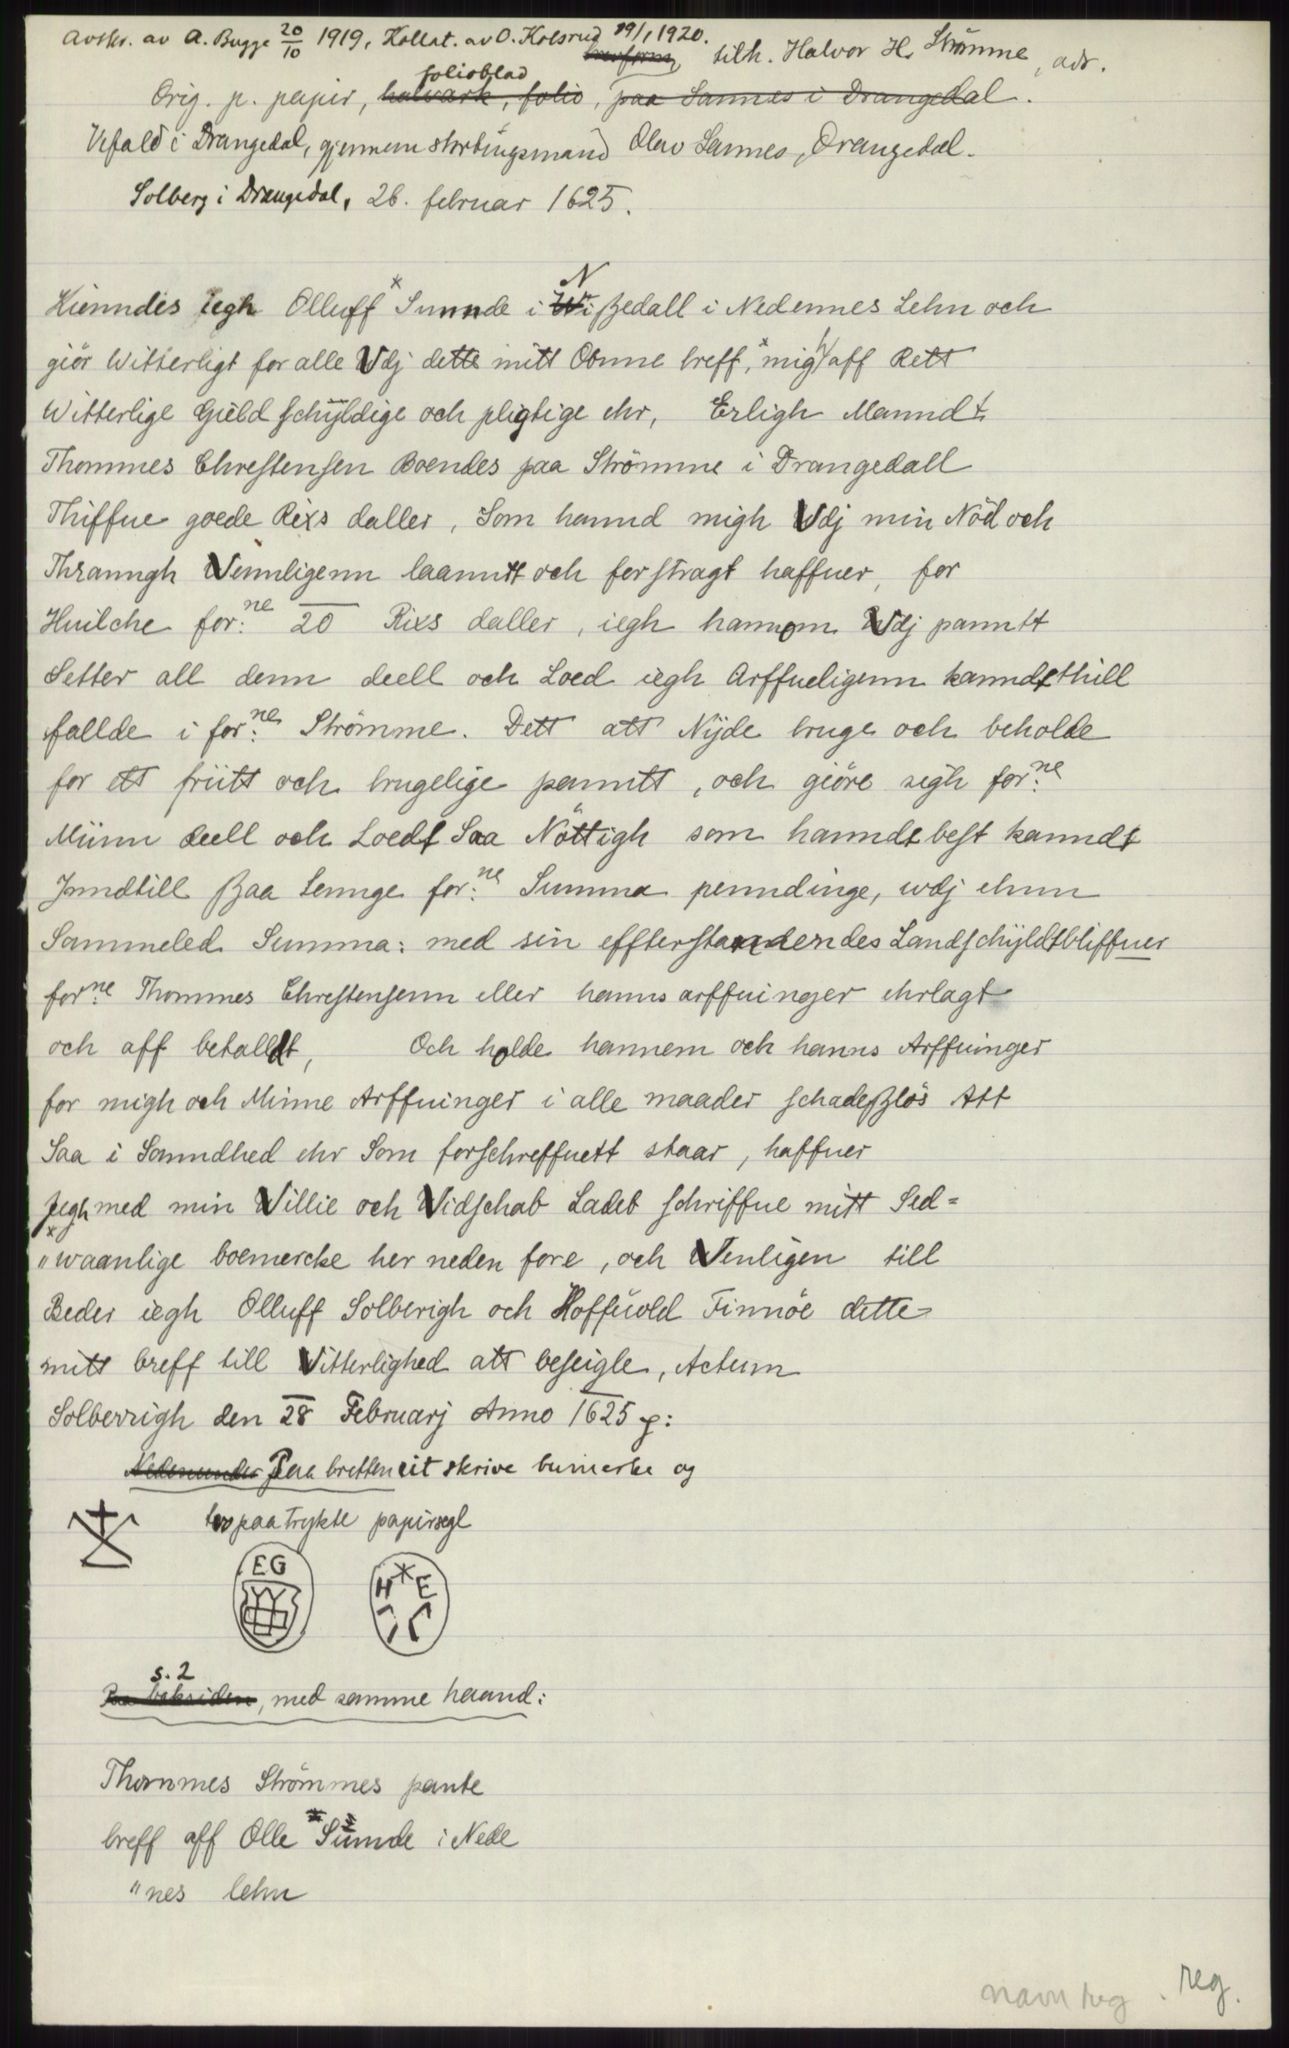 Avskr. av A. Bugge 20/10 1919, Kollat. av O. Kolsrud 29/1 1920.
brevform, tilh. Halvor H. Strømme, adr.
folioblad
Orig. p. papir, halvark, folio, paa Sannes i Drangedal.
Vefald i Drangedal, gjennem stortingsmand Olav Sannes, Drangedal.
Solberg i Drangedal, 28. februar 1625.
N
Kienndes iegh Olluff * Sunnde i Wißedall i Nedennes Lehn och
giör Witterligt for alle Vdj dette mitt Obnne breff, * migh aff Rett
Witterlige Gield schÿldige och pligtige ehr, Erligh Manndt
Thommes Chrestensen Boendes paa Strömme i Drangedall
Thiffue goede Rixs daller, Som hannd migh Vdj min Nöd och
Thranngh Vennligenn laanntt och forstragt haffuer, for
Huilche for:ne 20 Rixs daller, iegh hannom Vdj panntt
Setter all denn deell och Loed iegh Arffueligenn kanndt thill
fallde i for:ne Strömme. Dett att Nÿde bruge och beholde
for ett friitt och brugelige panntt, och giöre sigh for:ne
Miinn deell och Loedt Saa Nöttigh som hanndt best kanndt
Jnndtill ßaa Lennge for:ne Summa penndinge, wdj ehnn
Sammeled Summa: med sin effterstandendes Landschÿldt bliffuer
for:ne Thommes Chrestensenn eller hanns arffuinger ehrlagt
och aff betalldt, Och holde hannem och hanns Arffuinger
for migh och Minne Arffuinger i alle maader schadeßlös Att
Saa i Sanndhed ehr Som forschreffuett staar, haffuer
Jegh med min Villie och Vidschab Ladet schriffue mitt Sed=
* "waanlige boemercke her neden fore, och Venligen till
Beder iegh Olluff Solberigh och Hoffuold Finnöe dette
mitt breff till Vitterlighed att beseigle, Actum
Solberrigh den 28 Februarj Anno 1625 p:
Nedenunder Paa bretten eit skrive bumerke og
to paatrykte papirsegl
EG
H * E
s. 2
Paa baksiden, med samme haand:
Thommes Strömmes pante
breff aff Olle * Sunde i Nede
"nes lehn
navn reg . reg.